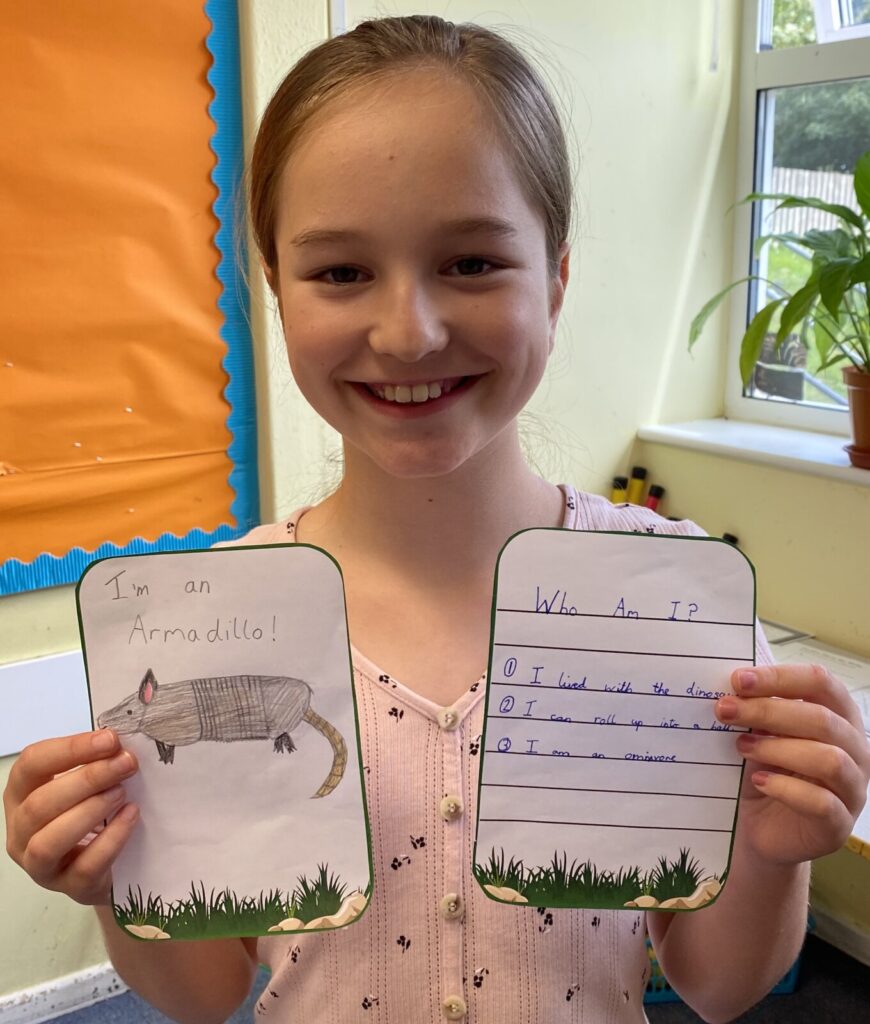 I'm an
Armadillo!
Who Am I?
① I lived with the
② I can roll up into a ball
③ I am an omnivore